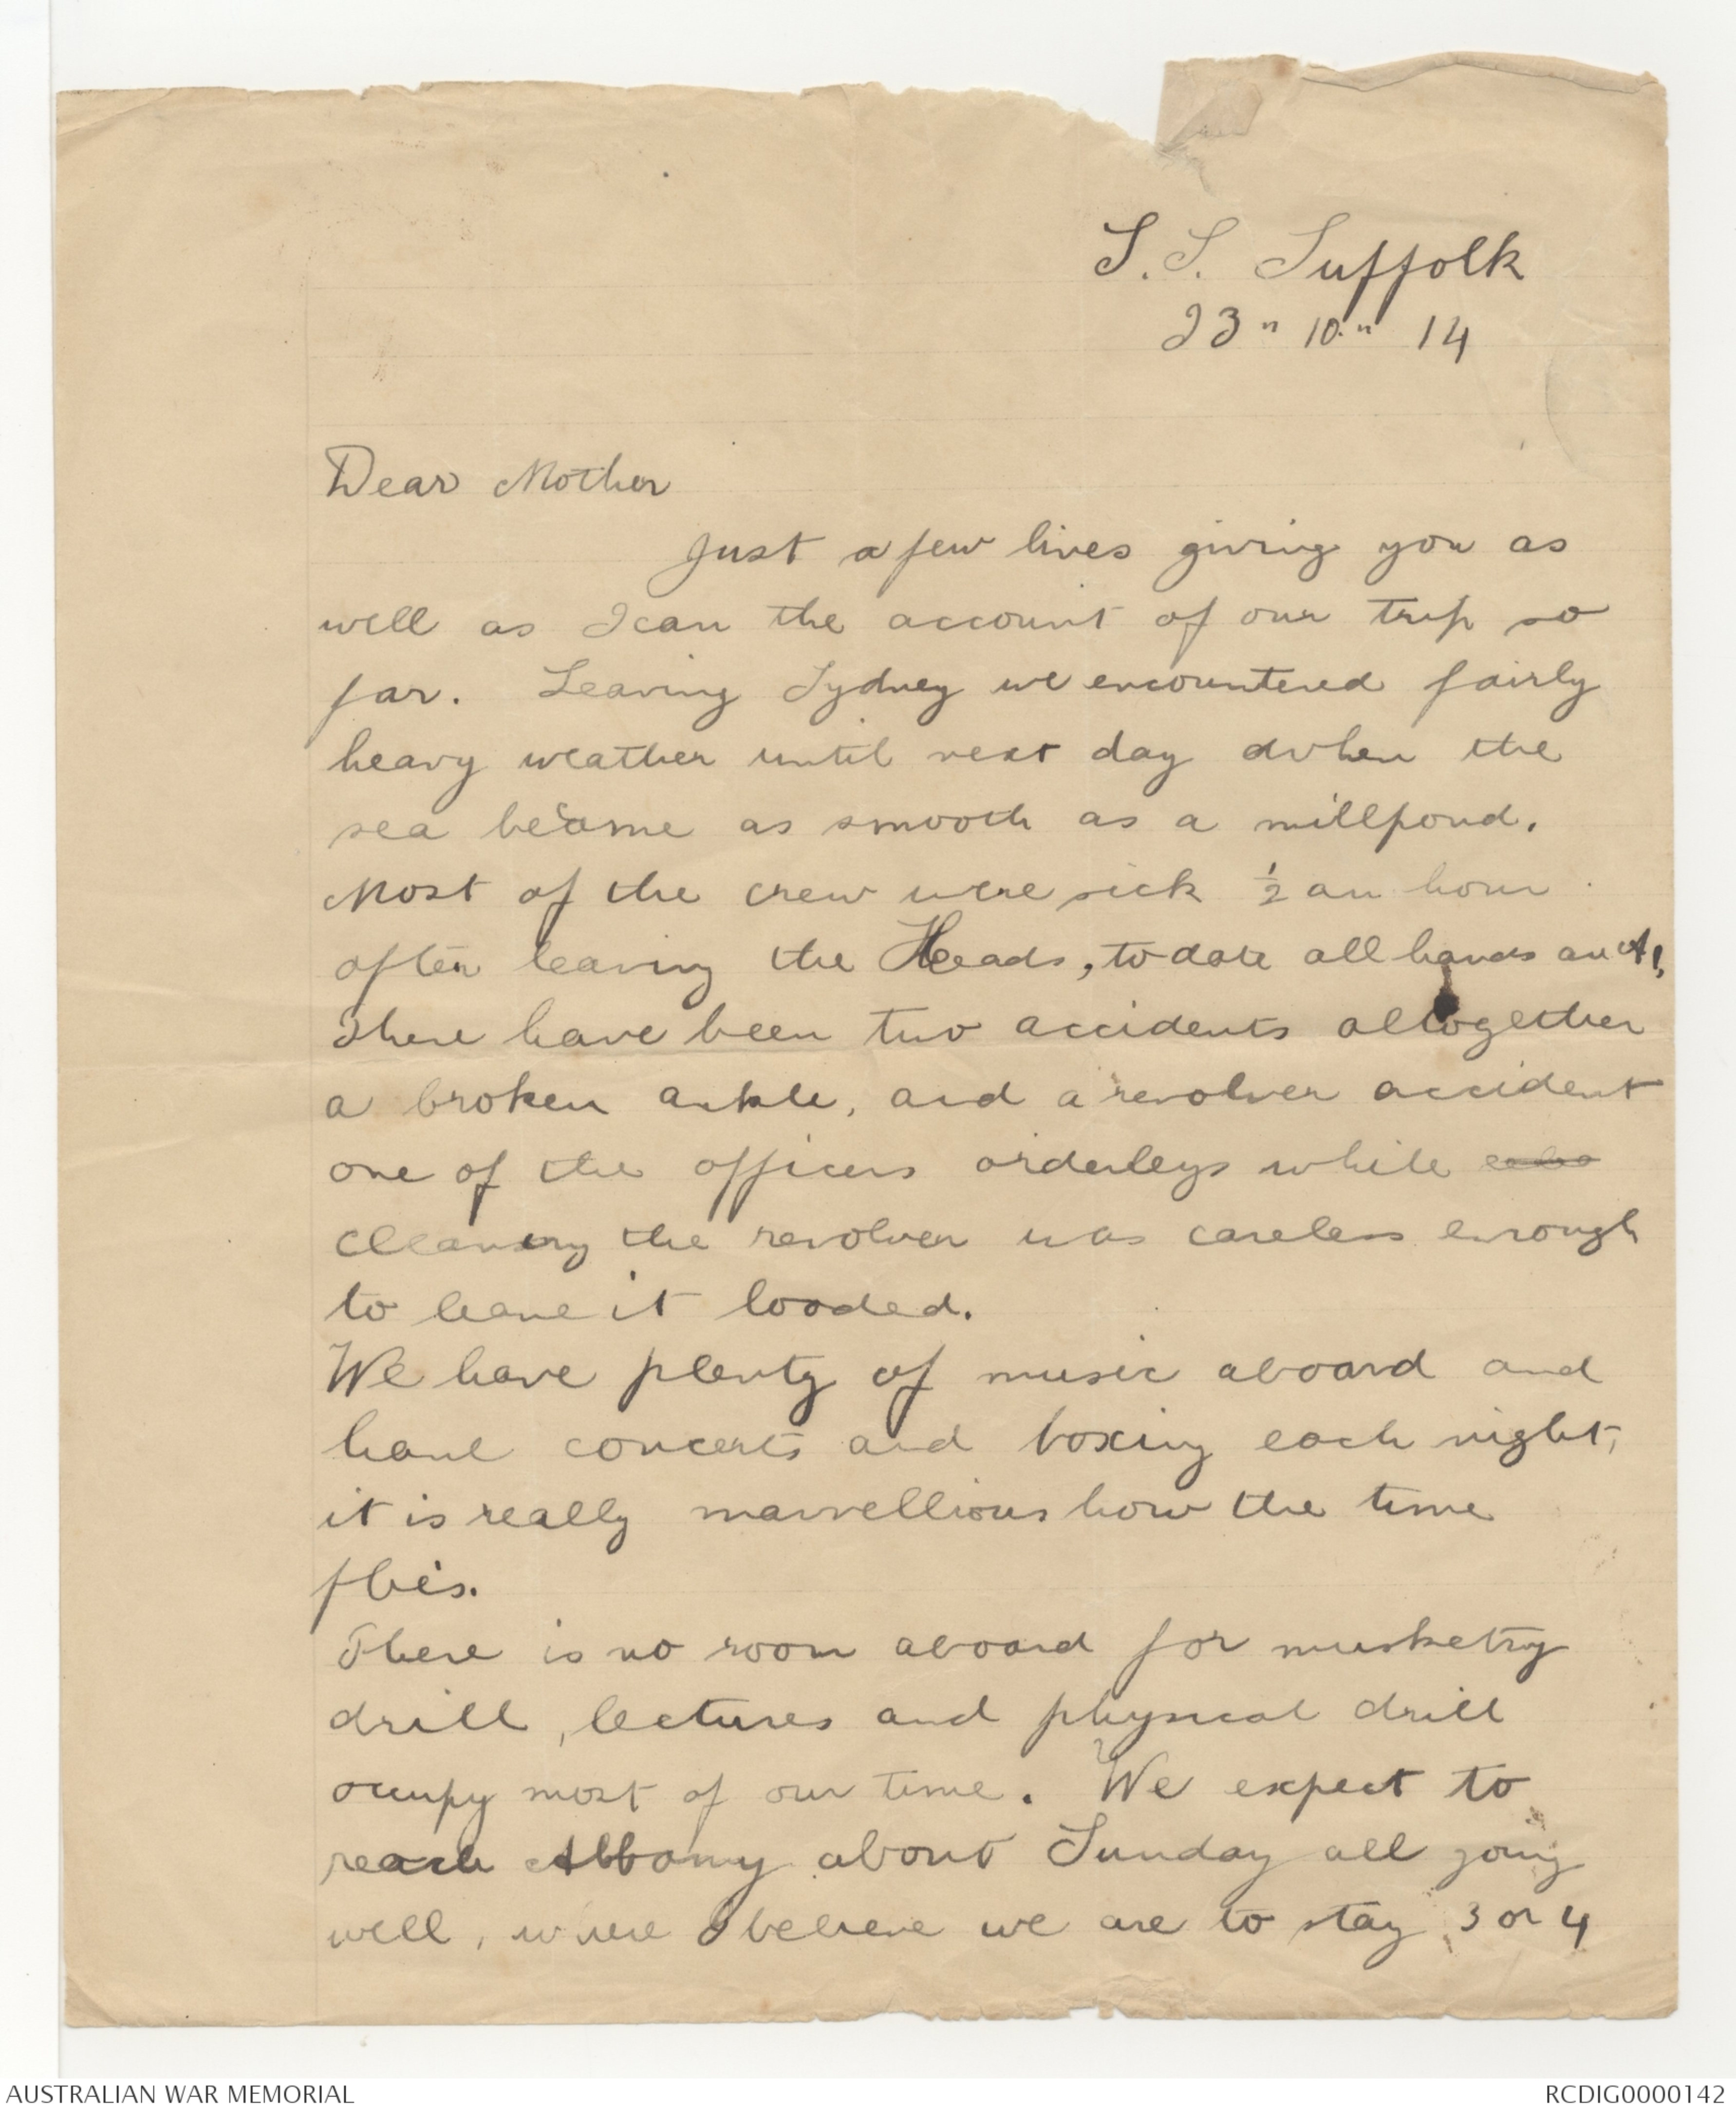 S.S. Suffolk
23 " 10 " 14
Dear Mother
Just a few lines giving you as
well as I can the account of our trip so
far. Leaving Sydney we encountered fairly
heavy weather until next day when the
sea became as smooth as a millpond.
Most of the crew were sick ½ an hour
after leaving the Heads, to date all hands are A1,
There have been two accidents altogether
a broken ankle, and a revolver accident
one of the officers orderleys while
cleaning the revolver was careless enough
to leave it loaded.
We have plenty of music aboard and
have concerts and boxing each night,
it is really marvellious how the time
flies.
There is no room aboard for musketry
drill, lectures and physical drill
occupy most of our time. We expect to
reach Albany about Sunday all going
well, where I believe we are to stay 3 or 4
AUSTRALIAN WAR MEMORIAL
RCDIG0000142